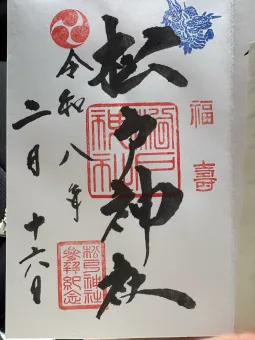 福壽
松戸神社
松戸神社
令和八年
二月 十六日
松戸神社
參拜紀念